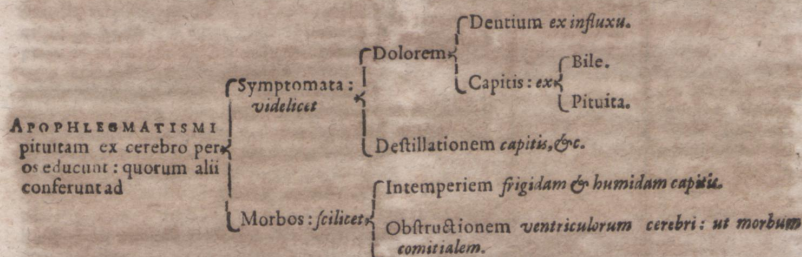 APOPHLEGMATISMI
pituitam ex cerebro per
os educunt : quorum alii
conferunt ad
Symptomata :
videlicet
Dolorem
Dentium ex influxu.
Capitis : ex
Bile.
Pituita.
Deſtillationem capitis, &c.
Morbos : ſcilicet
Intemperiem frigidam & humidam capitis.
Obſtructionem ventriculorum cerebri : ut morbum
comitialem.